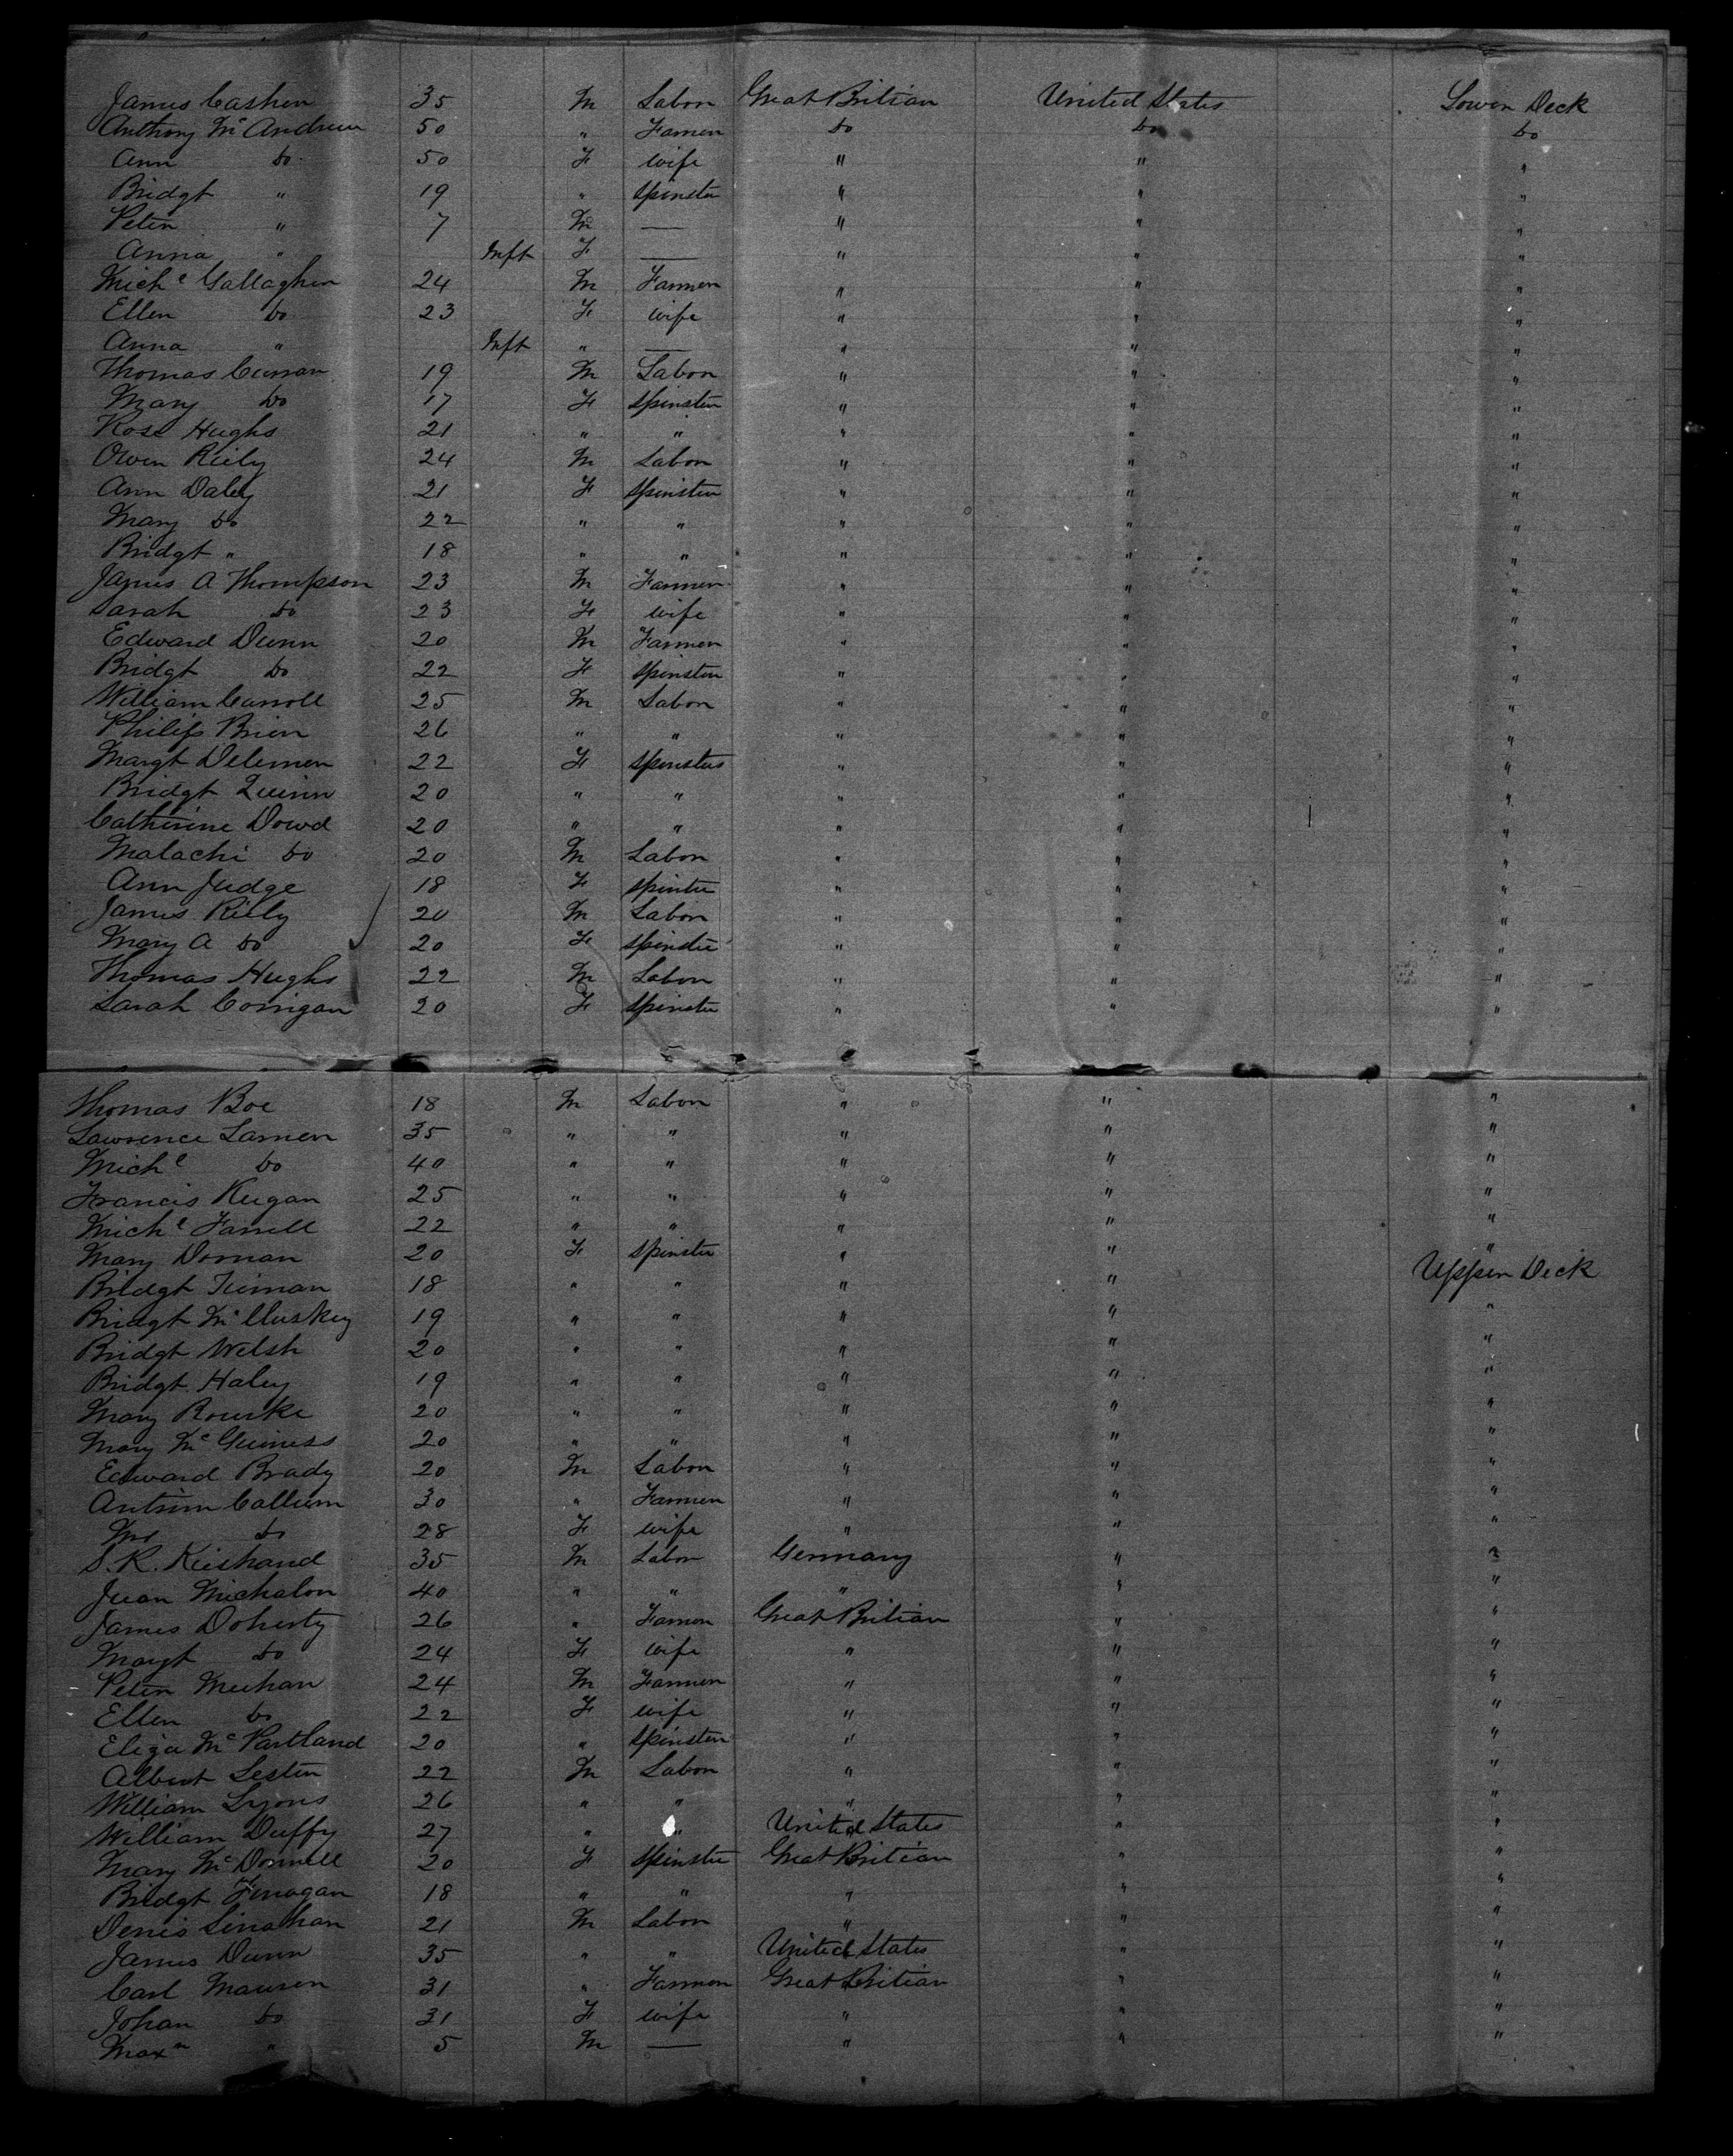 James Cashen 35 M Labor Great Britian United States Lower Deck
Anthony McAndrew 50 " Farmer do do do
Ann do 50 F wife " " "
Bridgt " 19 " spinster " " "
Peter " 7 M — " " "
Anna " Inft F — " " "
Michl Gallagher 24 M Farmer " " "
Ellen do 23 F wife " " "
Anna " Inft " — " " "
Thomas Curran 19 M Labor " " "
Mary do 17 F Spinster " " "
Rose Hughs 21 " " " " "
Owen Riely 24 M Labor " " "
Ann Daley 21 F Spinster " " "
Mary do 22 " " " " "
Bridgt " 18 " " " " "
James A Thompson 23 M Farmer " " "
Sarah do 23 F wife " " "
Edward Dunn 20 M Farmer " " "
Bridgt do 22 F spinster " " "
William Carroll 25 M Labor " " "
Philip Brien 26 " " " " "
Margt Delemer 22 F spinster " " "
Bridgt Quinn 20 " " " " "
Catherine Dowd 20 " " " " "
Malachi do 20 M Labor " " "
Ann Judge 18 F spinster " " "
James Rielly 20 M Labor " " "
Mary A do 20 F spinster " " "
Thomas Hughs 22 M Labor " " "
Sarah Corrigan 20 F spinster " " "
Thomas Boe 18 M Labor " " "
Lawrence Larner 35 " " " " "
Michl do 40 " " " " "
Francis Keegan 25 " " " " "
Michl Farrell 22 " " " " "
Mary Dornan 20 F spinster " " "
Bridgt Tiernan 18 " " " " Upper Deck
Bridgt McCluskey 19 " " " " "
Bridgt Welsh 20 " " " " "
Bridgt Haley 19 " " " " "
Mary Rourke 20 " " " " "
Mary McGuiness 20 " " " " "
Edward Brady 20 M Labor " " "
Antrim Callum 30 " Farmer " " "
Mrs do 28 F wife " " "
S. R. Kieshand 35 M Labor Germany " "
Juan Michalon 40 " " " " "
James Doherty 26 " Farmer Great Britian " "
Margt do 24 F wife " " "
Peter Meehan 24 M Farmer " " "
Ellen do 22 F wife " " "
Eliza McPartland 20 " spinster " " "
Albert Lester 22 M Labor " " "
William Lyons 26 " " " " "
William Duffy 27 " " United States " "
Mary McDonnell 20 F spinster Great Britian " "
Bridgt Finagan 18 " " " " "
Denis Linahan 21 M Labor " " "
James Dunn 35 " " United States " "
Carl Mauren 31 " Farmer Great Britian " "
Johan do 31 F wife " " "
Maxn " 5 M — " " "